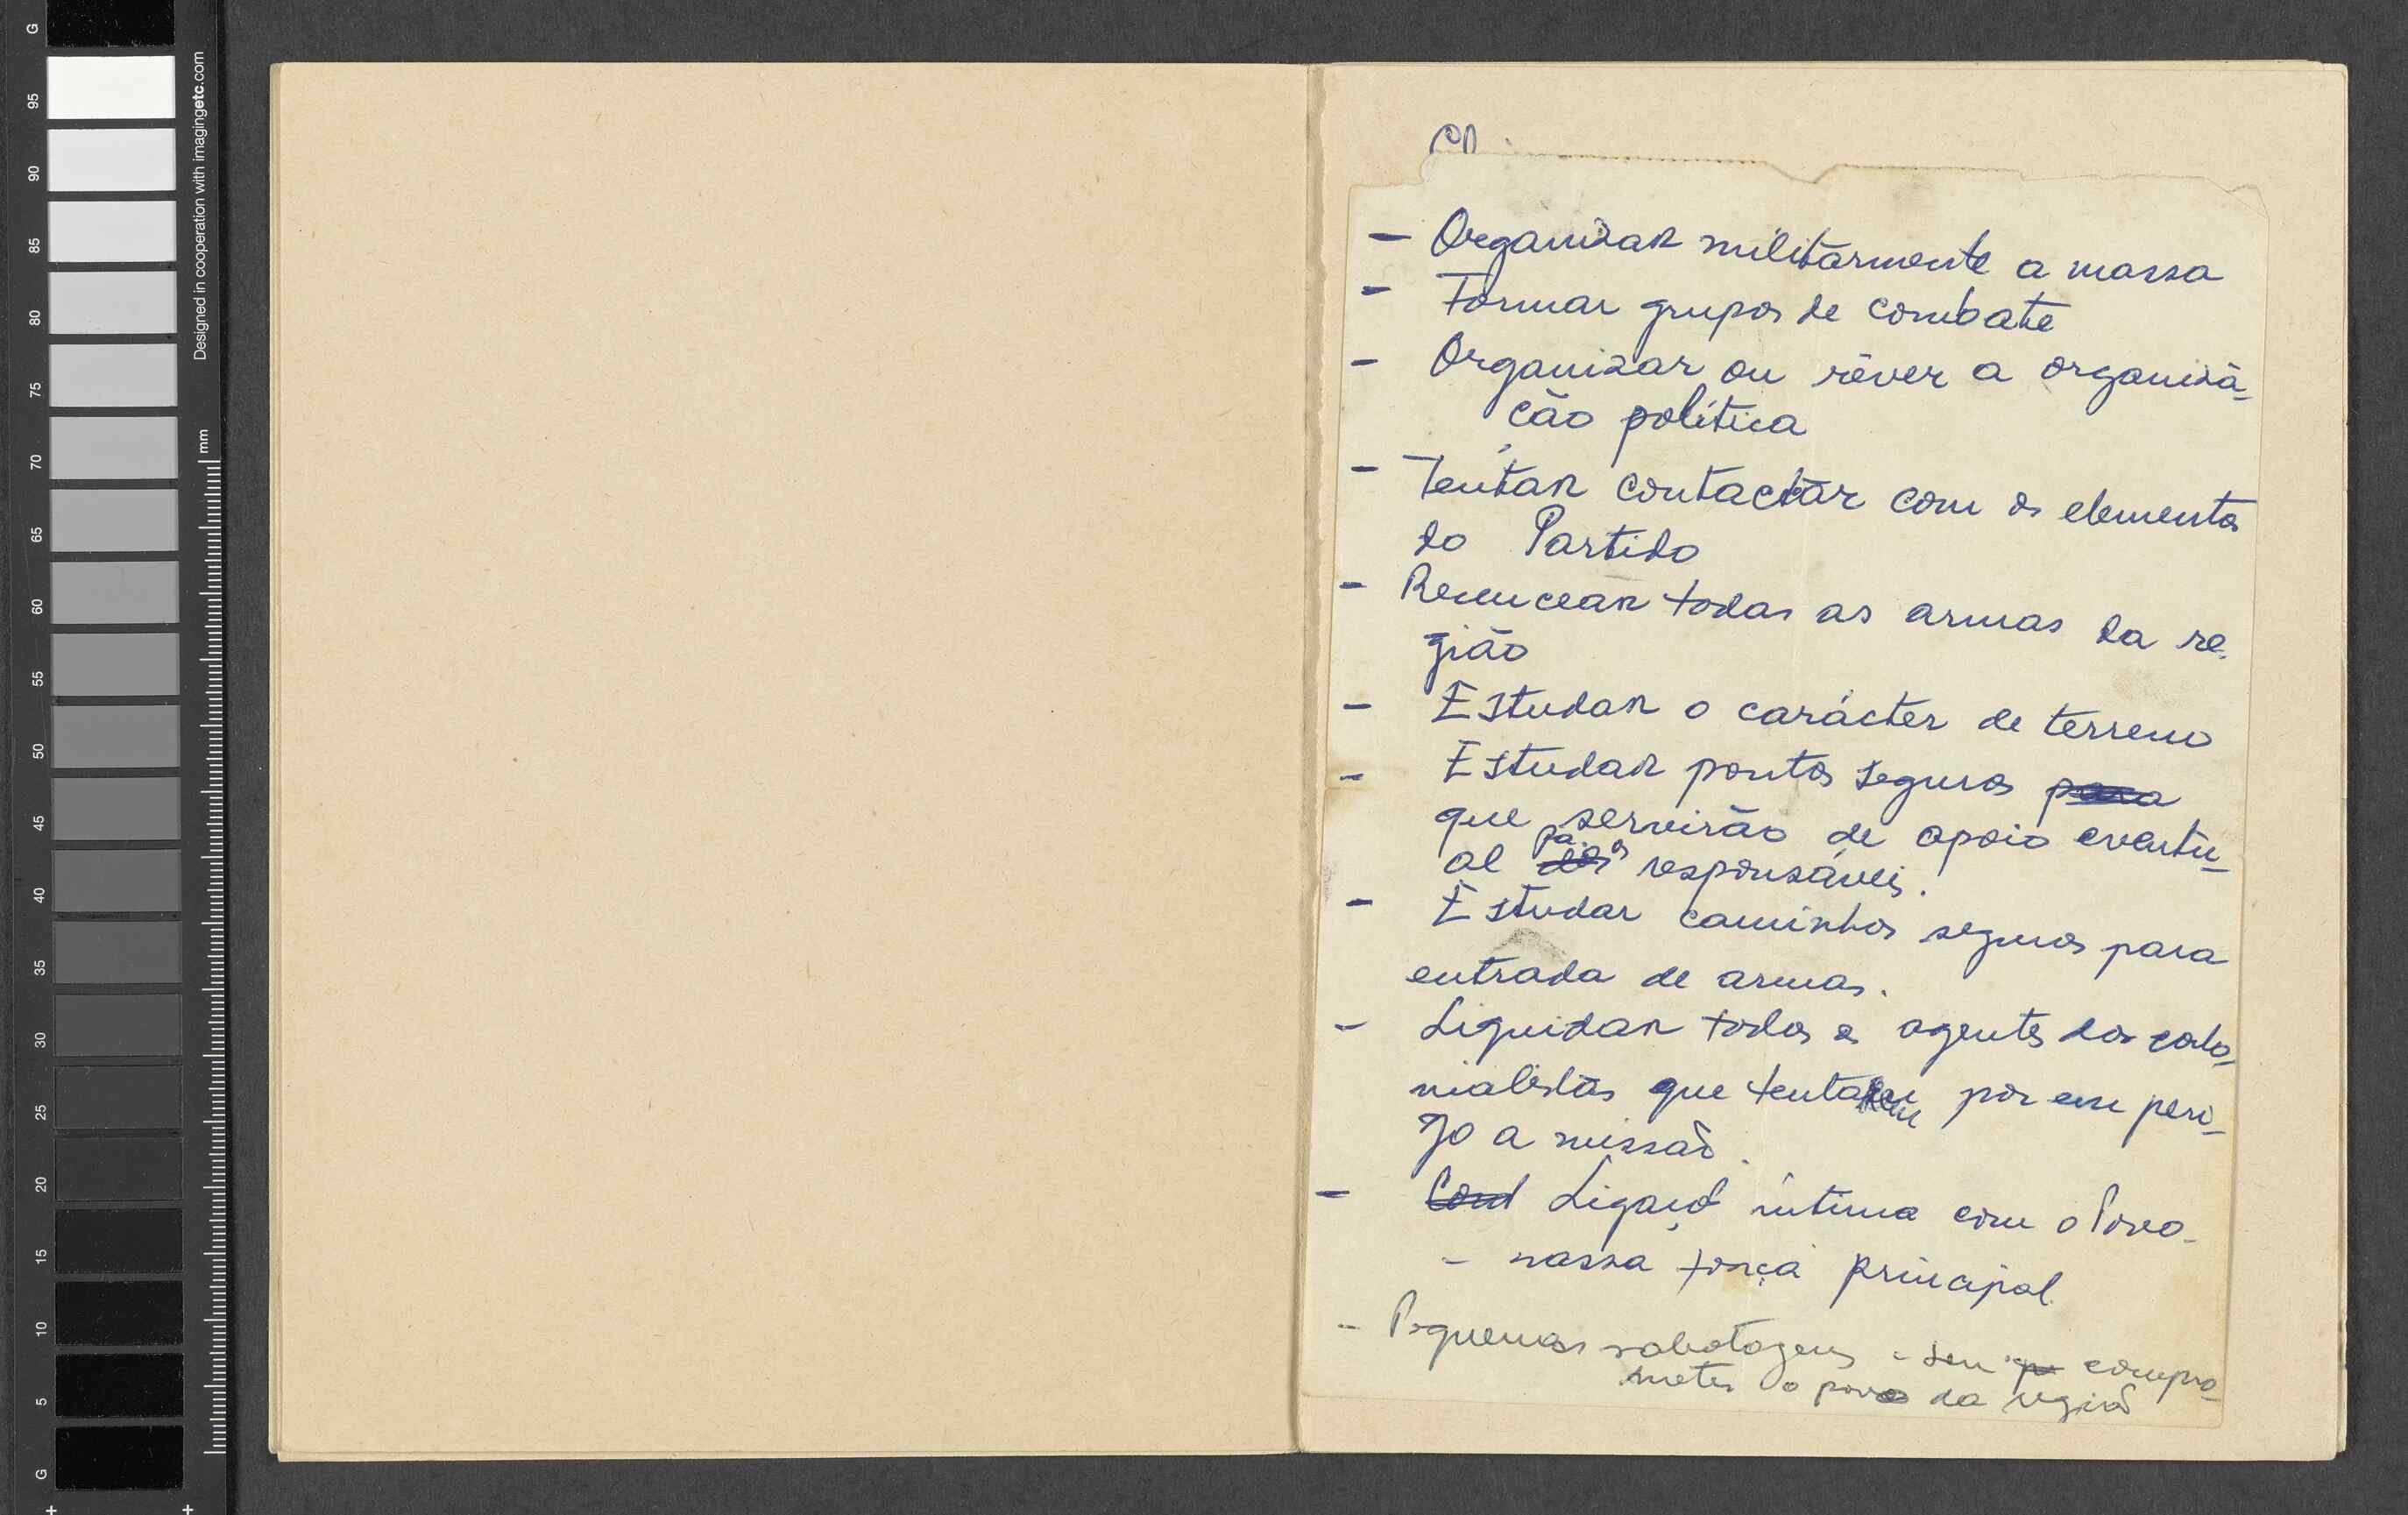 G
95
90
85
80
75
70
65
60
55
50
45
40
35
30
25
20
15
10
5
G
Designed in cooperation with imagingetc.com
mm
– Organizar militarmente a massa
– Formar grupos de combate
– Organizar ou rever a organiza-
ção política
– Tentar contactar com os elementos
do Partido
– todas as armas da re-
gião
– Estudar o carácter de terreno
– Estudar pontos seguros para
que servirão de apoio eventu-
al dos pa. os responsáveis.
– Estudar caminhos seguros para
entrada de armas.
– Liquidar todos os agentes dos colo-
nialistas que tentarem pôr em peri-
go a missão.
– Cond Ligação íntima com o Povo –
– nossa força principal
– Pequenas sabotagens – sem compro-
meter o povo da região